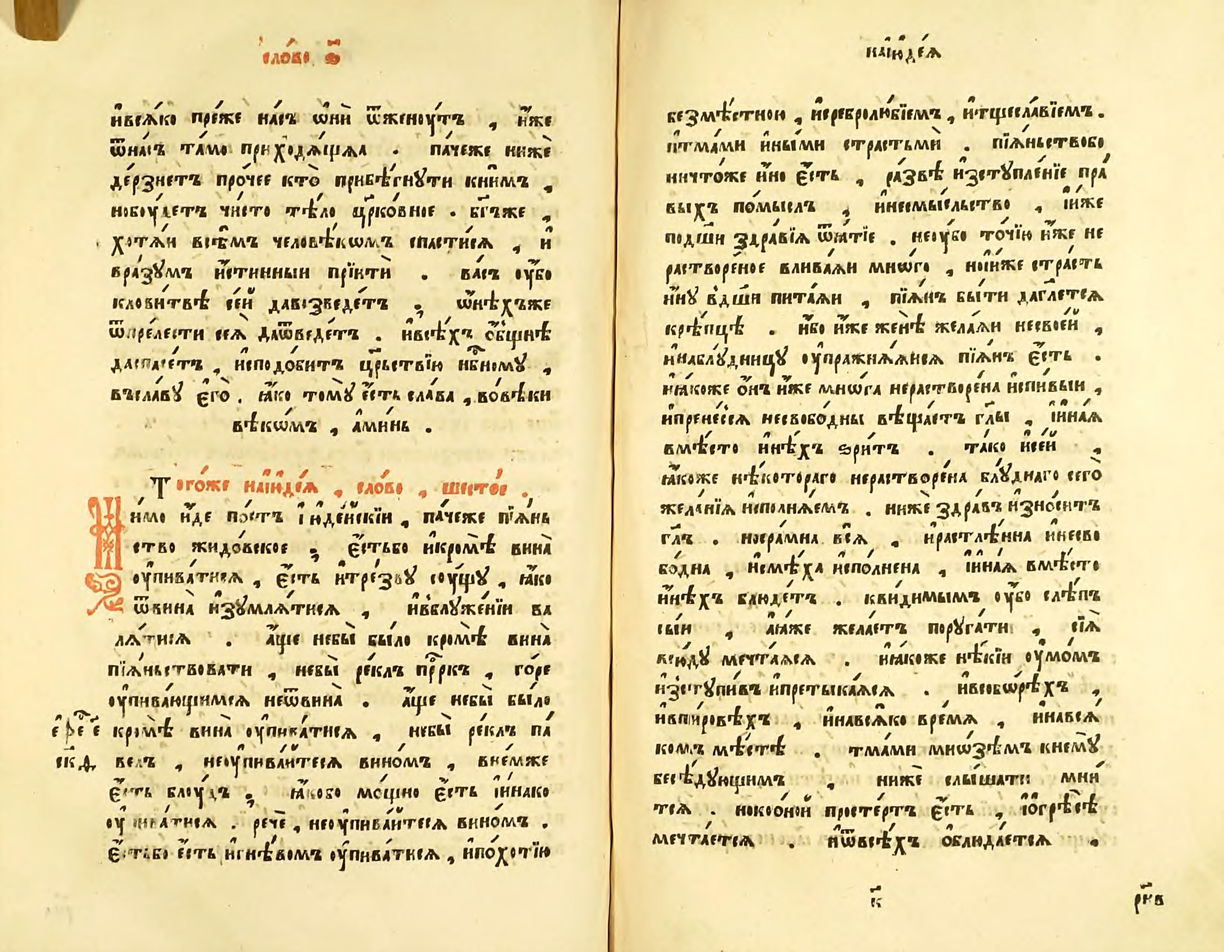 слово ѕ҃
ивсѧко преже насъ ѡни ѿженоутъ , иже
ѿнасъ тамо приходѧщаѧ . пачеже ниже
дерзнетъ прочее кто прибѣгнути книмъ ,
небоудетъ чисто тѣло црк҃овное . бг҃ъже ,
хотѧи всѣмъ человѣкѡмъ спастисѧ , и
вразумъ истинныи прїити . васъ оубо
кловитвѣ сеи давозведетъ ; ѡнѣхъже
ѿпрелести сеѧ даѿведетъ . ивсѣхъ ѻбщнѣ
даспасетъ , исподобитъ црьствїю нбн҃ому ,
въславу его . ꙗко тому есть слава , вовѣки
вѣкѡмъ , аминь .
Тогоже наіюдеѧ , слово , шестое .
Мимо иде постъ іюдейскїи , пачеже пїѧнь
ство жидовское ; естьбо икромѣ вина
оупиватисѧ , есть итрезву соущу , ꙗко
ѿвина изумлѧтисѧ , ивблуженїи ва
лѧтисѧ . аще небы было кромѣ вина
пїѧньствовати , небы реклъ прⷪ҇ркъ , горе
оупивающимсѧ неѿвина . аще небы было
кромѣ вина оупиватисѧ , небы реклъ па
велъ , неоупиваитесѧ виномъ , внемже
есть блоудъ ; ꙗкобо мощно есть іинако
оупиватисѧ . рече , неоупиваитесѧ виномъ .
естьбо есть игнѣвомъ оупиватисѧ , ипохотїю
сѯ҃д
наіюдеѧ
безмѣстною , исребролюбїемъ , итщеславїемъ .
итмами иными страстьми . пїѧньствобо
ничтоже ино есть , развѣ изступленїе пра
выхъ помыслъ , инесмысльство , іиже
подш҃и здравїѧ ѿѧтїе . неоубо точїю иже не
растворе&#110;ое вливаѧи мнѡго , ноиже страсть
ину вдш҃и питаѧи , пїѧнъ быти даглетсѧ
крѣпцѣ . ибо иже женѣ желаѧи несвоеи ,
инаблудницу оупражнѧѧисѧ пїѧнъ есть .
иꙗкоже ѻнъ иже мнѡга нерастворена испивыи ,
ипренесѧ несвободны вѣщаетъ глы , іинаѧ
вмѣсто инѣхъ зритъ . тако исеи ,
ꙗкоже нѣкотораго нерастворена блуднаго сего
желанїѧ исполнѧемъ . ниже здравъ износитъ
глъ . носрамна всѧ , ирастлѣнна инесво
бодна , исмѣха исполнена , іинаѧ вмѣсто
инѣхъ блюдетъ . квидимымъ оубо слѣпъ
сыи , аꙗже желаетъ поругати , сїѧ
всюду мечтаѧсѧ . иꙗкоже нѣкїи оумомъ
изступивъ ипретыкаѧсѧ . ивсобѡрѣхъ ,
ивпировѣхъ , инавсѧко времѧ , инавсѧ
комъ мѣстѣ . тмами мнѡзѣмъ кнему
бесѣдующимъ , ниже слышати мни
тсѧ . нокоонои простертъ есть , іогрѣсѣ
мечтаетсѧ . иѿвсѣхъ облюдаетсѧ .
к҃
рк҃в